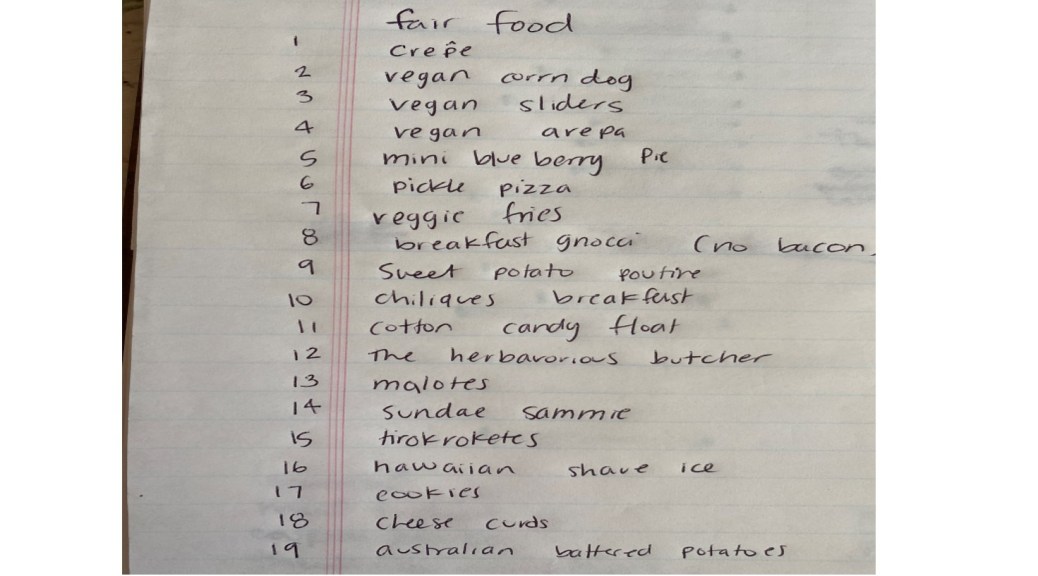 fair food
1 crepê
2 vegan corrn dog
3 vegan sliders
4 vegan arepa
5 mini blueberry pie
6 pickle pizza
7 veggie fries
8 breakfast gnocci (no bacon
9 Sweet potato poutine
10 chiliques breakfast
11 cotton candy float
12 The herbavorious butcher
13 malotes
14 sundae sammie
15 tirokroketes
16 hawaiian shave ice
17 cookies
18 cheese curds
19 australian battered potatoes